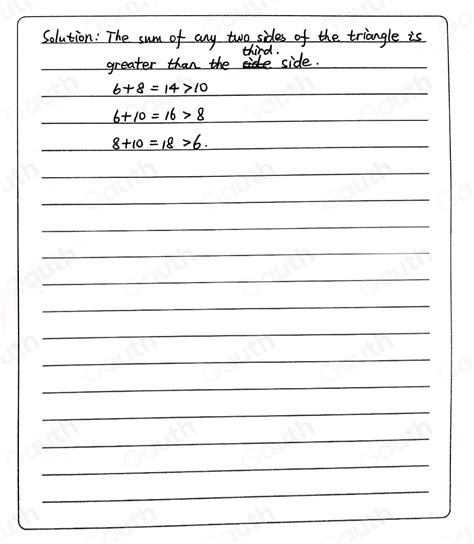 Solution: The sum of any two sides of the triangle is
third.
greater than the side side.
6+8=14>10
6+10=16>8
8+10=18>6.
Gauth